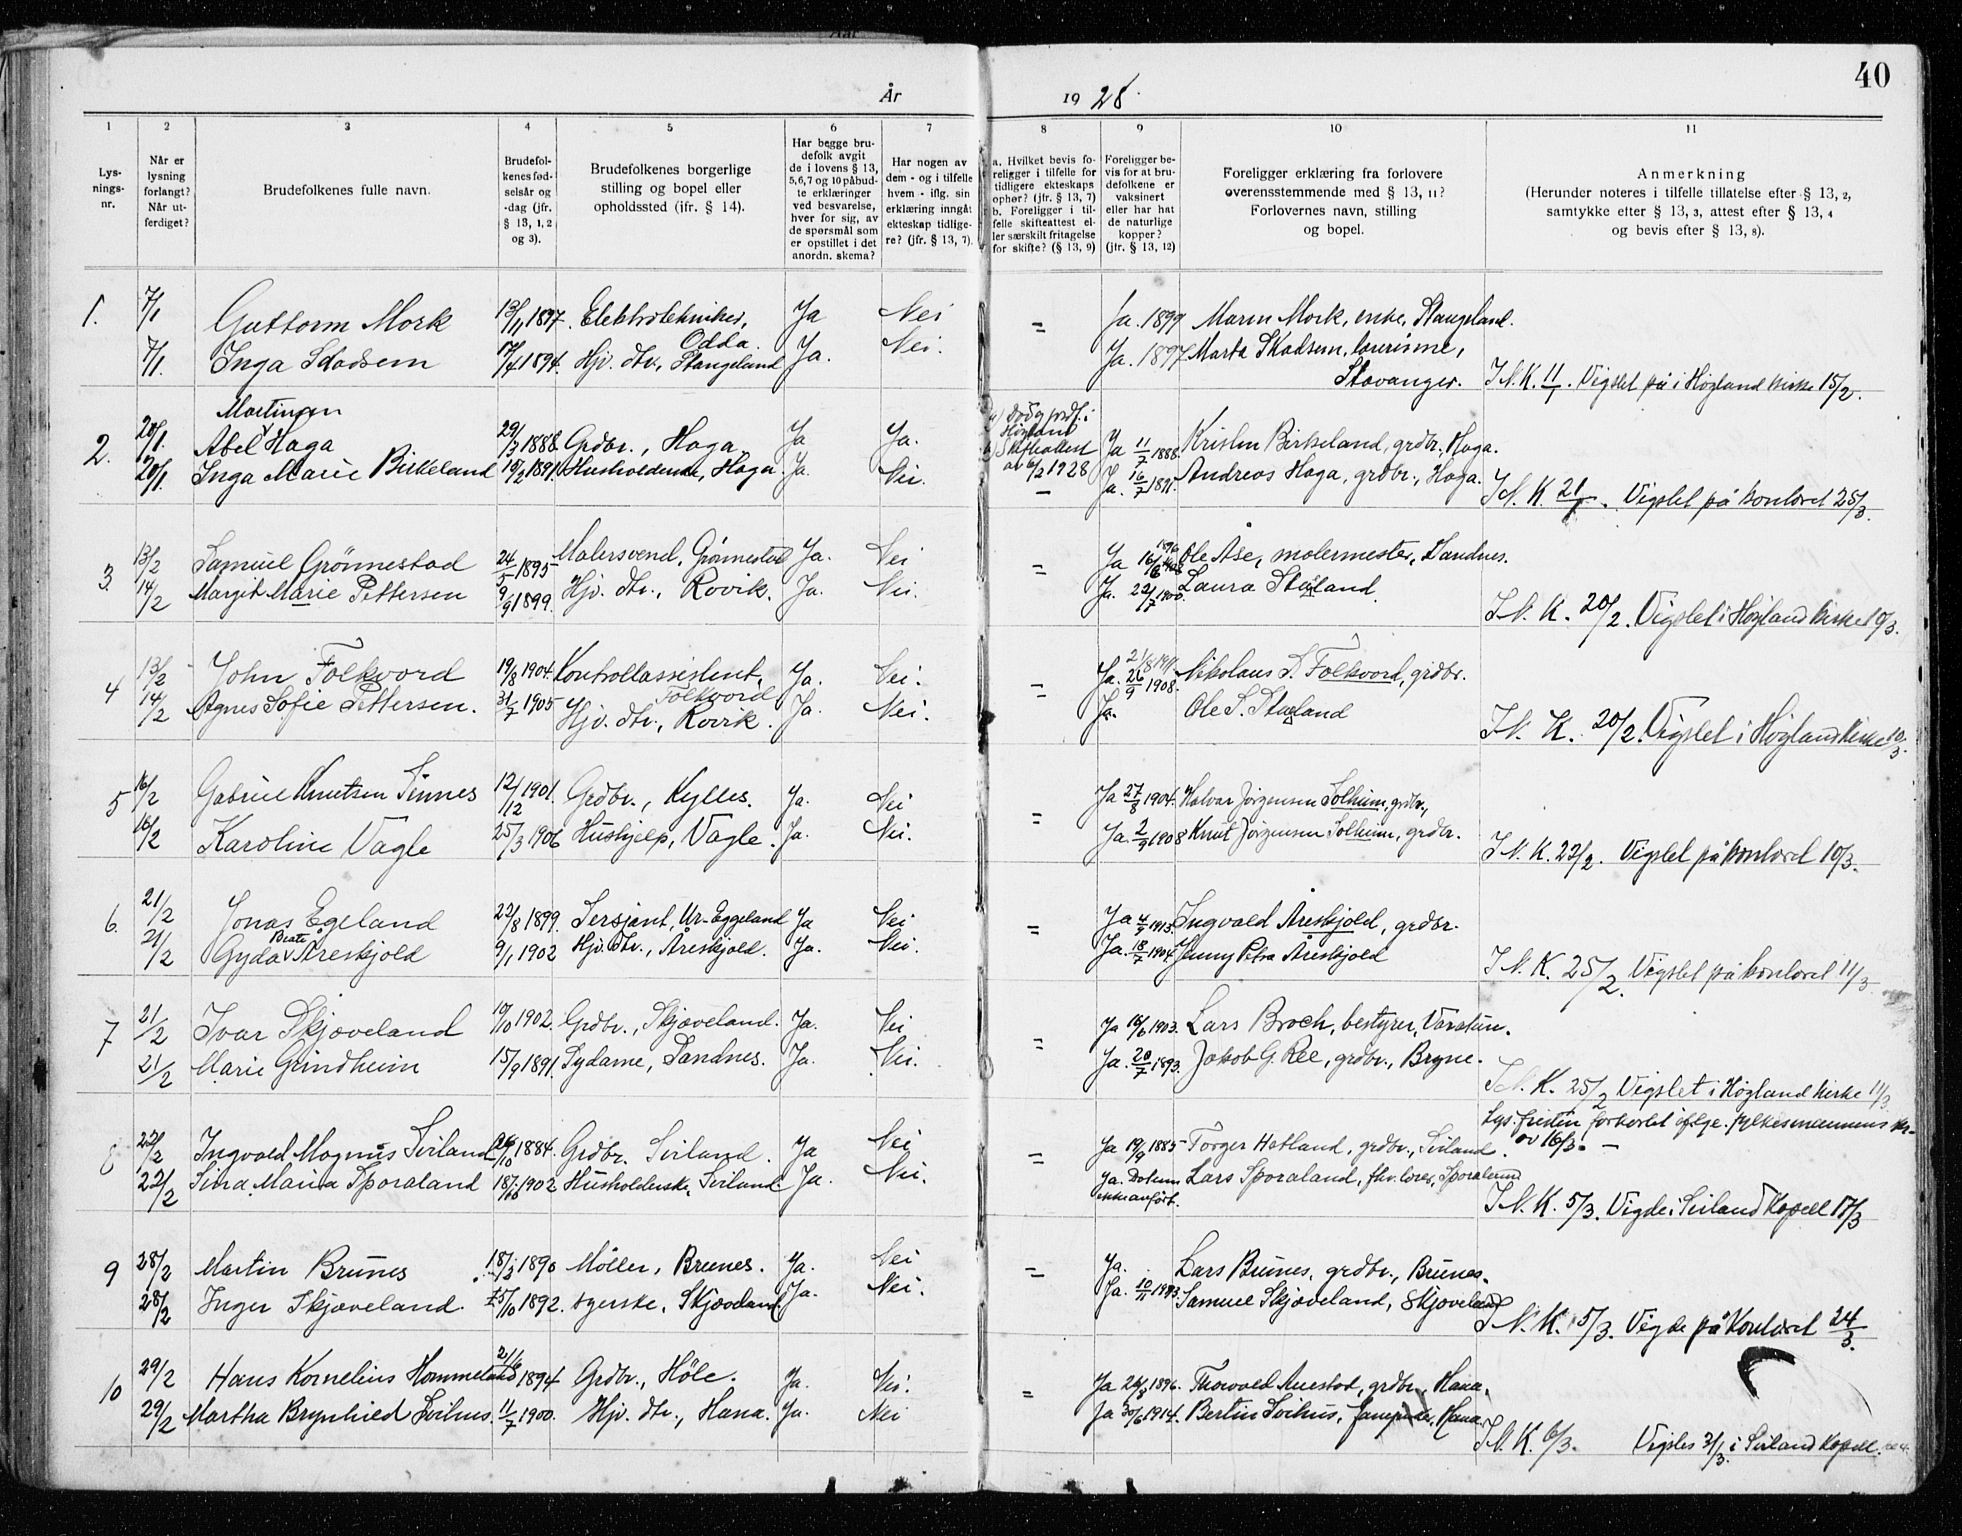 40
År 1928.
1 2 3 4 5 6 7 8 9 10 11
Lysningsnr.
Når er lysning forlangt? Når utferdiget?
Brudefolkenes fulle navn.
Brudefolkenes fødselsår og -dag (jfr. § 13, 1, 2 og 3).
Brudefolkenes borgerlige stilling og bopel eller opholdssted (jfr. § 14).
Har begge brudefolk avgit de i lovens § 13, 5, 6, 7 og 10 påbudte erklæringer ved besvarelse, hver for sig, av de spørsmål som er opstillet i det anordn. skema?
Har nogen av dem - og i tilfelle hvem - iflg. sin erklæring inngåt ekteskap tidligere? (jfr. § 13, 7).
a. Hvilket bevis foreligger i tilfelle for tidligere ekteskaps ophør? (jfr. § 13, 7) b. Foreligger i tilfelle skifteattest eller særskilt fritagelse for skifte? (§ 13, 9)
Foreligger bevis for at brudefolkene er vaksinert eller har hat de naturlige kopper? (jfr. § 13, 12)
Foreligger erklæring fra forlovere overensstemmende med § 13, 11? Forlovernes navn, stilling og bopel.
Anmerkning (Herunder noteres i tilfelle tillatelse efter § 13, 2, samtykke efter § 13, 3, attest efter § 13, 4 og bevis efter § 13, 8).
1. 7/1 Guttorm Mork 13/11 1897. Elektrotekniker, Odda. Ja Nei = Ja. 1899 Maren Mork, enke, Stangeland.
7/1. Inga Skadsem 17/4 1894. Hjv. dtr., Stangeland Ja. Nei. Ja. 1897 Marta Skadsem, lærerinne, Stavanger. I N. K. 11/1. Vigslet på i Høgland kirke 15/2.
2. 20/1. Abel Martinsen Haga 29/3 1888. Grdbr., Haga. Ja Ja. a) Død g. prdl. i Høgland b) Skifteattest av 6/2 1928 Ja 11/7 1888. Kristen Birkeland, grdbr., Haga.
20/1. Inga Marie Birkeland 15/2 1891. Husholderske, Haga. Ja. Nei. – Ja. 16/7 1891. Andreas Haga, grdbr., Haga. I N. K. 21/1. Vigslet på kontoret 25/3.
3. 13/2 Samuel Grønnestad 24/5 1895 Malersvend, Grønnestad Ja. Nei = Ja 16/6 1896 Ole Åse, malermester, Sandnes.
14/2 Margit Marie Pettersen 9/9 1899. Hjv. dtr., Rovik. Ja. Nei. Ja. 22/7 1900. Laura Skeiland. I N. K. 20/2. Vigslet i Høyland kirke 10/3.
4 13/2 John Folkvord 19/8 1904. Kontrollassistent, Folkvord Ja. Nei. = Ja. 26/9 1908. Nikolaus S. Folkvord, grdbr.
14/2 Agnes Sofie Pettersen. 31/7 1905 Hjv. dtr., Rovik. Ja. Nei. Ja. Ole S. Skeiland I N. K. 20/2. Vigslet i Høgland kirke 10/3.
5 16/2 Gabriel Knutsen Sinnes 12/12 1901. Grdbr., Kylles. Ja. Nei = Ja 27/8 1904. Halvar Jørgensen Solheim, grdbr.,
16/2 Karoline Vagle 25/3 1906 Hushjelp, Vagle. Ja. Nei. Ja. 2/9 1908 Knut Jørgensen Solheim, grdbr. I N. K. 23/2. Vigslet på kontoret 10/3.
6. 21/2 Jonas Egeland 22/8 1899. Sersjant, Ur-Eggeland Ja Nei = Ja 4/9 1913. Ingvald Åreskjold, grdbr.
21/2 Gyda Beate Åreskjold 9/1 1902 Hjv. dtr., Åreskjold. Ja. Nei. Ja. 18/7 1904. Jenny Petra Åreskjold I N. K. 25/2. Vigslet på kontoret 11/3.
7 21/2 Ivar Skjæveland 10/10 1902. Grdbr., Skjæveland. Ja. Nei = Ja 16/6 1903. Lars Broch, bestyrer, Varatun.
21/2 Marie Grindheim 15/9 1891. Sydame, Sandnes. Ja. Nei. Ja. 20/7 1893. Jakob G. Ree, grdbr., Bryne. I N. K. 25/2 Vigslet i Høgland kirke 11/3
8 22/2 Ingvald Magnus Sviland 24/10 1884. Grdbr. Sviland. Ja Nei = Ja 19/9 1885 Torger Hetland, grdbr., Sviland. Lys. fristen forkortet ifølge fylkesmannens av 16/3. –
22/2 Sina Maria Sporaland 18/ 1902 Husholderske, Sviland. Ja. Nei. Ja. Datum ikke anført. Lars Sporaland, fhv. lærer, Sporaland I N. K. 5/3. Vigde i Sviland Kapell 17/3
9 28/2 Martin Brunes 18/3 1890 Møller, Brunes. Ja. Nei = Ja. Lars Brunes, grdbr., Brunes.
28/2 Inger Skjæveland. 25/10 1892. syerske, Skjæveland. Ja. Nei. Ja. 10/11 1893. Samuel Skjæveland, Skjæveland I N. K. 5/3. Vigde på kontoret 24/3.
10 29/2 Hans Kornelius Hommeland 21/6 1894 Grdbr., Høle. Ja. Nei. = Ja 24/8 1896. Thorvald Auestad, grdbr., Hana.
29/2 Martha Brynhild Svihus. 11/7 1900. Hjv. dtr., Hana. Ja. Nei Ja 30/6 1914. Bertin Svihus, Hana. I N. K. 6/3. Vigsles 31/3. i Sviland Kapell.